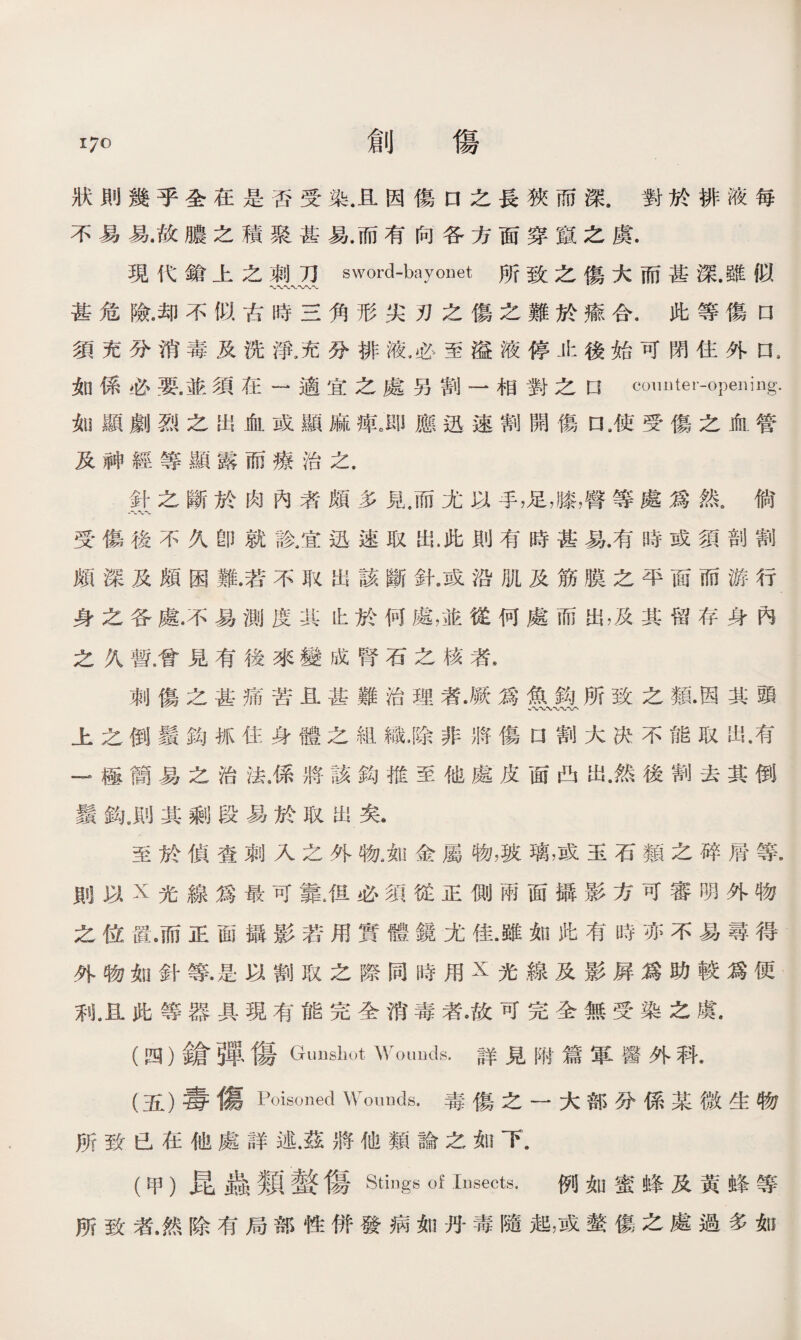 170 創傷
狀則幾乎全在是否受染.且因傷口之長狹而深. 對於排液每
不易易.故膿之積聚甚易.而有向各方面穿竄之虞.
現代鎗上之刺刀 sword-bayonet 所致之傷大而甚深.雖似
甚危險.却不似古時三角形尖刃之傷之難於癒合. 此等傷口
須充分消毒及洗淨.充分排液.必至溢液停止後始可閉住外口.
如係必要.並須在一適宜之處另割一相對之口 counter-opening.
如顯劇烈之出血或顯麻痺.即應迅速割開傷口.使受傷之血管
及神經等顯露而療治之.
針之斷於肉內者頗多見.而尤以手,足,膝,臀等處爲然. 倘
受傷後不久卽就診.宜迅速取出.此則有時甚易.有時或須剖割
頗深及頗困難.若不取出該斷針.或沿肌及筋膜之平面而游行
身之各處.不易測度其止於何處,並從何處而出,及其留存身內
之久暫.曾見有後來變成腎石之核者.
刺傷之甚痛苦且甚難治理者.厥爲魚鈎所致之類.因其頭
上之倒鬚鈎抓住身體之組織.除非將傷口割大决不能取出.有
一極簡易之治法.係將該鈎推至他處皮面凸出.然後割去其倒
鬚鈎.則其剩段易於取出矣.
至於偵查刺入之外物.如金屬物,玻璃,或玉石類之碎屑等.
則以X光線爲最可靠.但必須從正側兩面攝影方可審明外物
之位置.而正面攝影若用實體鏡尤佳.雖如此有時亦不易尋得
外物如針等.是以割取之際同時用X光線及影屏爲助較爲便
利.且此等器具現有能完全消毒者.故可完全無受染之虞.
(四)鎗彈傷 Gunshot Wounds. 詳見附篇軍醫外科.
(五)毒傷 Poisoned Wounds. 毒傷之一大部分係某微生物
所致已在他處詳述.茲將他類論之如下.
(甲)昆蟲類螫傷 Stings of Insects. 例如蜜蜂及黃蜂等
所致者.然除有局部性併發病如丹毒隨起,或螫傷之處過多如